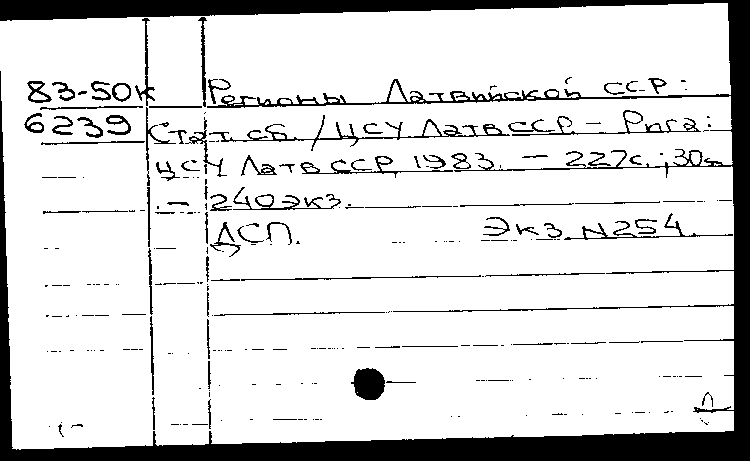 83-50К Регионы Латвийской ССР:
6239 Стат. сб. / ЦСУ ЛатвССР. – Рига:
ЦСУ ЛатвССР, 1983. – 227с.; 30см
. – 240экз.
ДСП. Экз. N254.